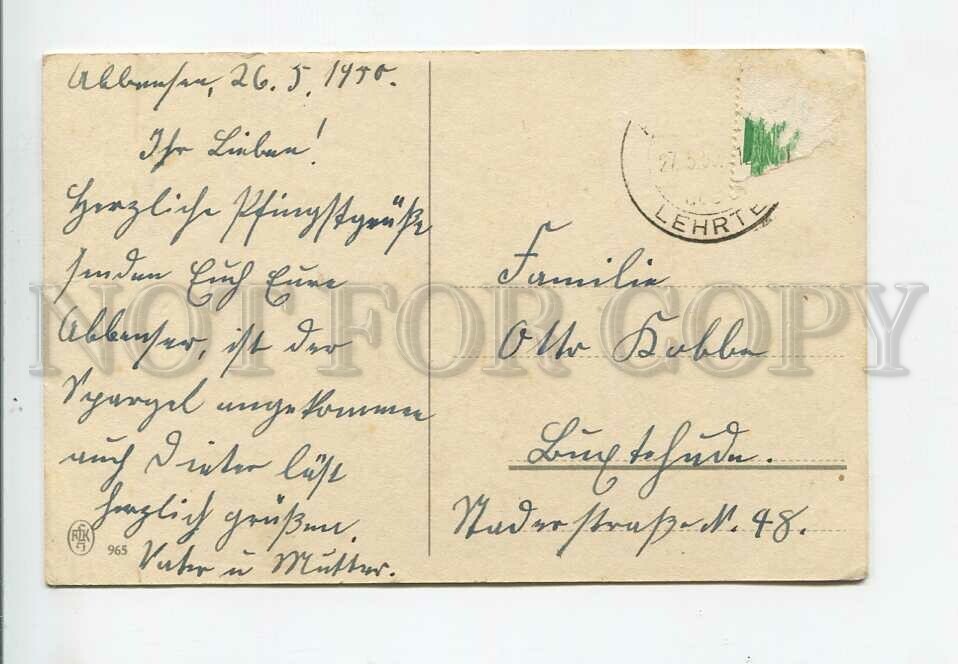 Abbensen, 26.5.1950.
Ihr Lieben!
Herzliche Pfingstgrüße
senden Euch Eure
Abbenser, ist der
Spargel angekommen
auch Dieter läßt
herzlich grüßen.
Vater u Mutter.
965
LEHRTE
Familie
Otto Kobbe
Buxtehude.
Staderstraße N. 48.
NOT FOR COPY